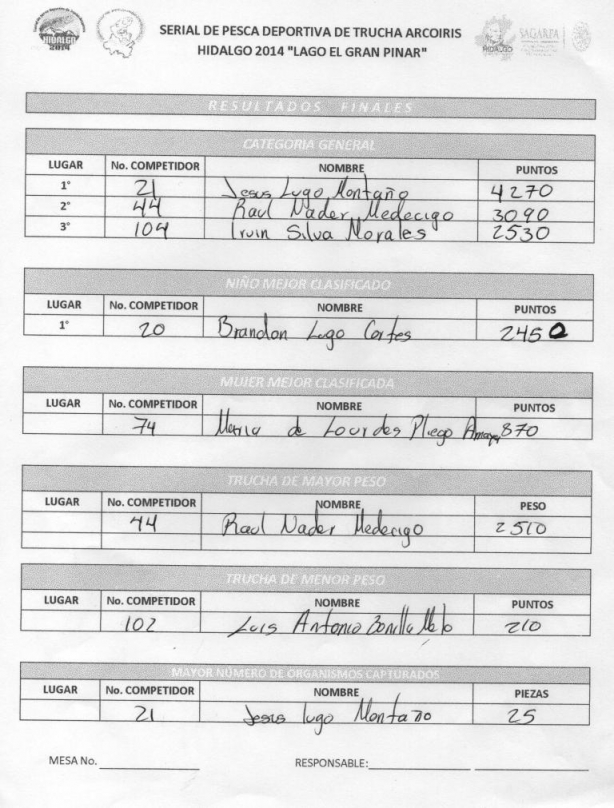 SERIAL DE PESCA DEPORTIVA DE TRUCHA ARCOIRIS
HIDALGO 2014 "LAGO EL GRAN PINAR"
HIDALGO
2014
HIDALGO
SAGARPA
RESULTADOS FINALES
CATEGORIA GENERAL
LUGAR No. COMPETIDOR NOMBRE PUNTOS
1° 21 Jesus Lugo Montaño 4270
2° 44 Raul Nader Medecigo 3090
3° 104 Irvin Silva Morales 2530
NIÑO MEJOR CLASIFICADO
LUGAR No. COMPETIDOR NOMBRE PUNTOS
1° 20 Brandon Lugo Cortes 2450
MUJER MEJOR CLASIFICADA
LUGAR No. COMPETIDOR NOMBRE PUNTOS
74 Maria de Lourdes Pliego Amaya 870
TRUCHA DE MAYOR PESO
LUGAR No. COMPETIDOR NOMBRE PESO
44 Raul Nader Medecigo 2510
TRUCHA DE MENOR PESO
LUGAR No. COMPETIDOR NOMBRE PUNTOS
102 Luis Antonio Bonilla Melo 210
MAYOR NÚMERO DE ORGANISMOS CAPTURADOS
LUGAR No. COMPETIDOR NOMBRE PIEZAS
21 Jesus lugo Montaño 25
MESA No. RESPONSABLE: